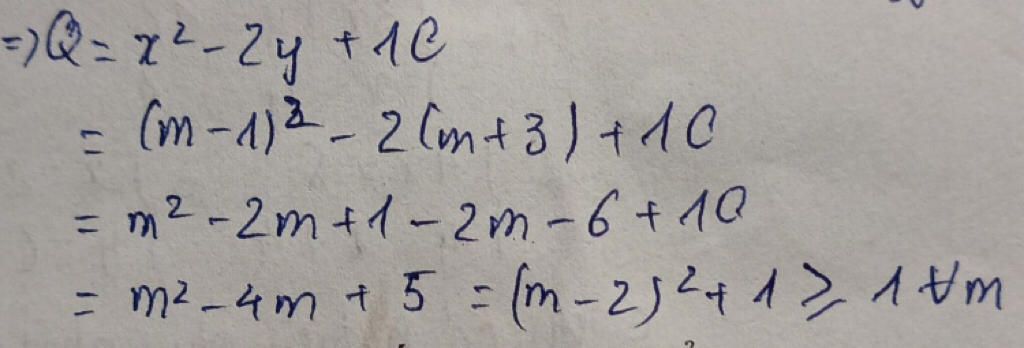 => Q = x² - 2y + 10
= (m - 1)² - 2(m + 3) + 10
= m² - 2m + 1 - 2m - 6 + 10
= m² - 4m + 5 = (m - 2)² + 1 ≥ 1 ∀m